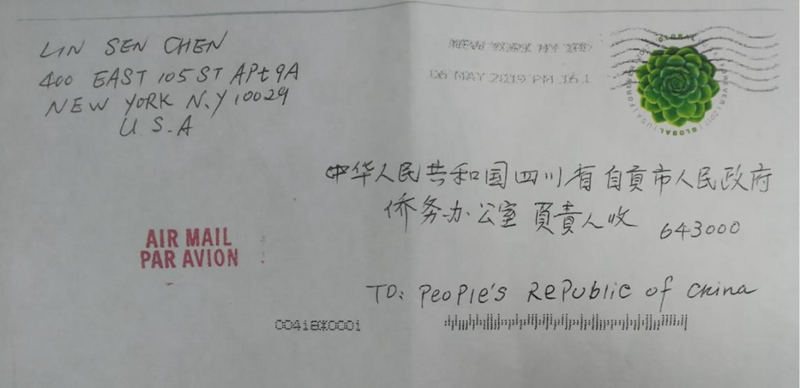 LIN SEN CHEN
400 EAST 105 ST APt 9A
NEW YORK N.Y 10029
U.S.A
NEW YORK NY 100
06 MAY 2019 PM 16 L
GLOBAL
中华人民共和国四川省自贡市人民政府
侨务办公室 負責人收 643000
AIR MAIL
PAR AVION
TO: PeoPle's RePublic of China